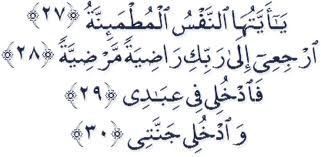 يَٰٓأَيَّتُهَا ٱلنَّفْسُ ٱلْمُطْمَئِنَّةُ ﴿٢٧﴾
ٱرْجِعِىٓ إِلَىٰ رَبِّكِ رَاضِيَةً مَّرْضِيَّةً ﴿٢٨﴾
فَٱدْخُلِى فِى عِبَٰدِى ﴿٢٩﴾
وَٱدْخُلِى جَنَّتِى ﴿٣٠﴾